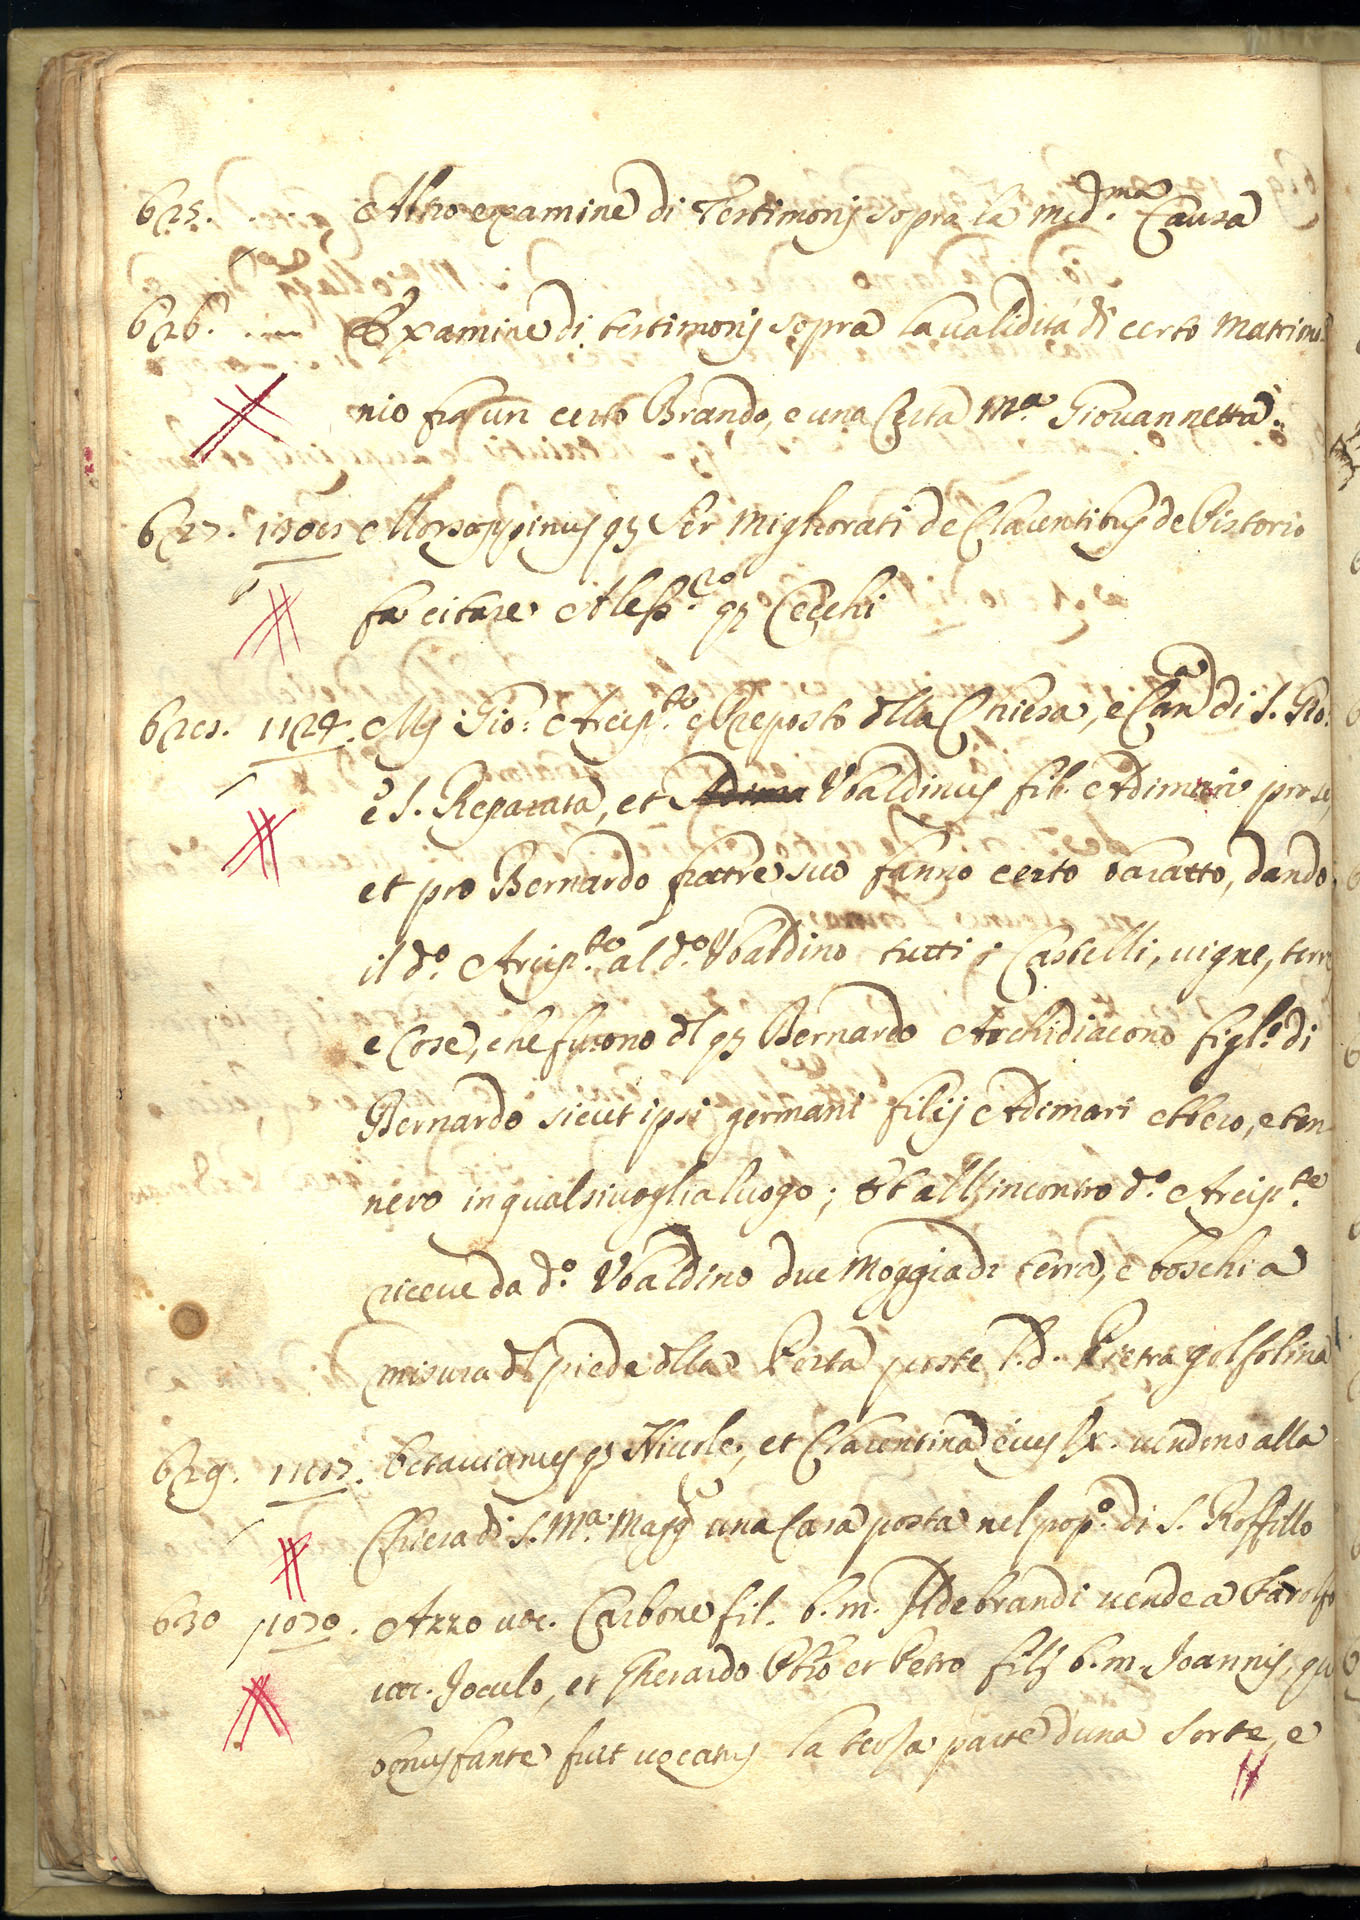 625. .. Altro examine di Testimonij sopra la med.ma Causa
626. .. Examine di testimonij sopra la validità di certo Matrimo-
nio fra un certo Brando, e una Certa M.a Giovannetta.
627. Mozzoppinus q3 Ser Migliorati de Clarentinis de Pistorio
fa citare Aless.ro q3 Cecchi
628. 1124. Gio: Arcip.te e Preposto dlla Chiesa, e Can di S. Gio:
e S. Reparata, et Ubaldinus fil. Adimari pro se,
et pro Bernardo fratre suo fanno certo baratto, dando
il d.o Arcip.te al d.o Ubaldino tutti i Castelli, vigne, terre
e Cose, che furono dl q3 Bernardo Archidiacono figl.o di
Bernardo sicut ipsi germani filij Adimari ebbero, e ten-
nero in qualsivoglia luogo; et all'incontro d.o Arcip.te
riceve da d.o Ubaldino due Moggia di terra, e boschi a
misura dl piede dlla Porta poste l.d. Pietra golfolina
629. Octavianus q3 Nicole, et Clarentina eius Ux. vendono alla
Chiesa di S. M.a Magg una Casa posta nel pop.o di S. Roffillo
630 1070. Azzo voc. Carbone fil. b.m. Ildebrandi vende a Farolfo
voc. Joculo, et Gherardo Pbro et Petro filij b.m. Joannis, qui
bonusfante fuit vocatus la terza parte d'una Sorte, e